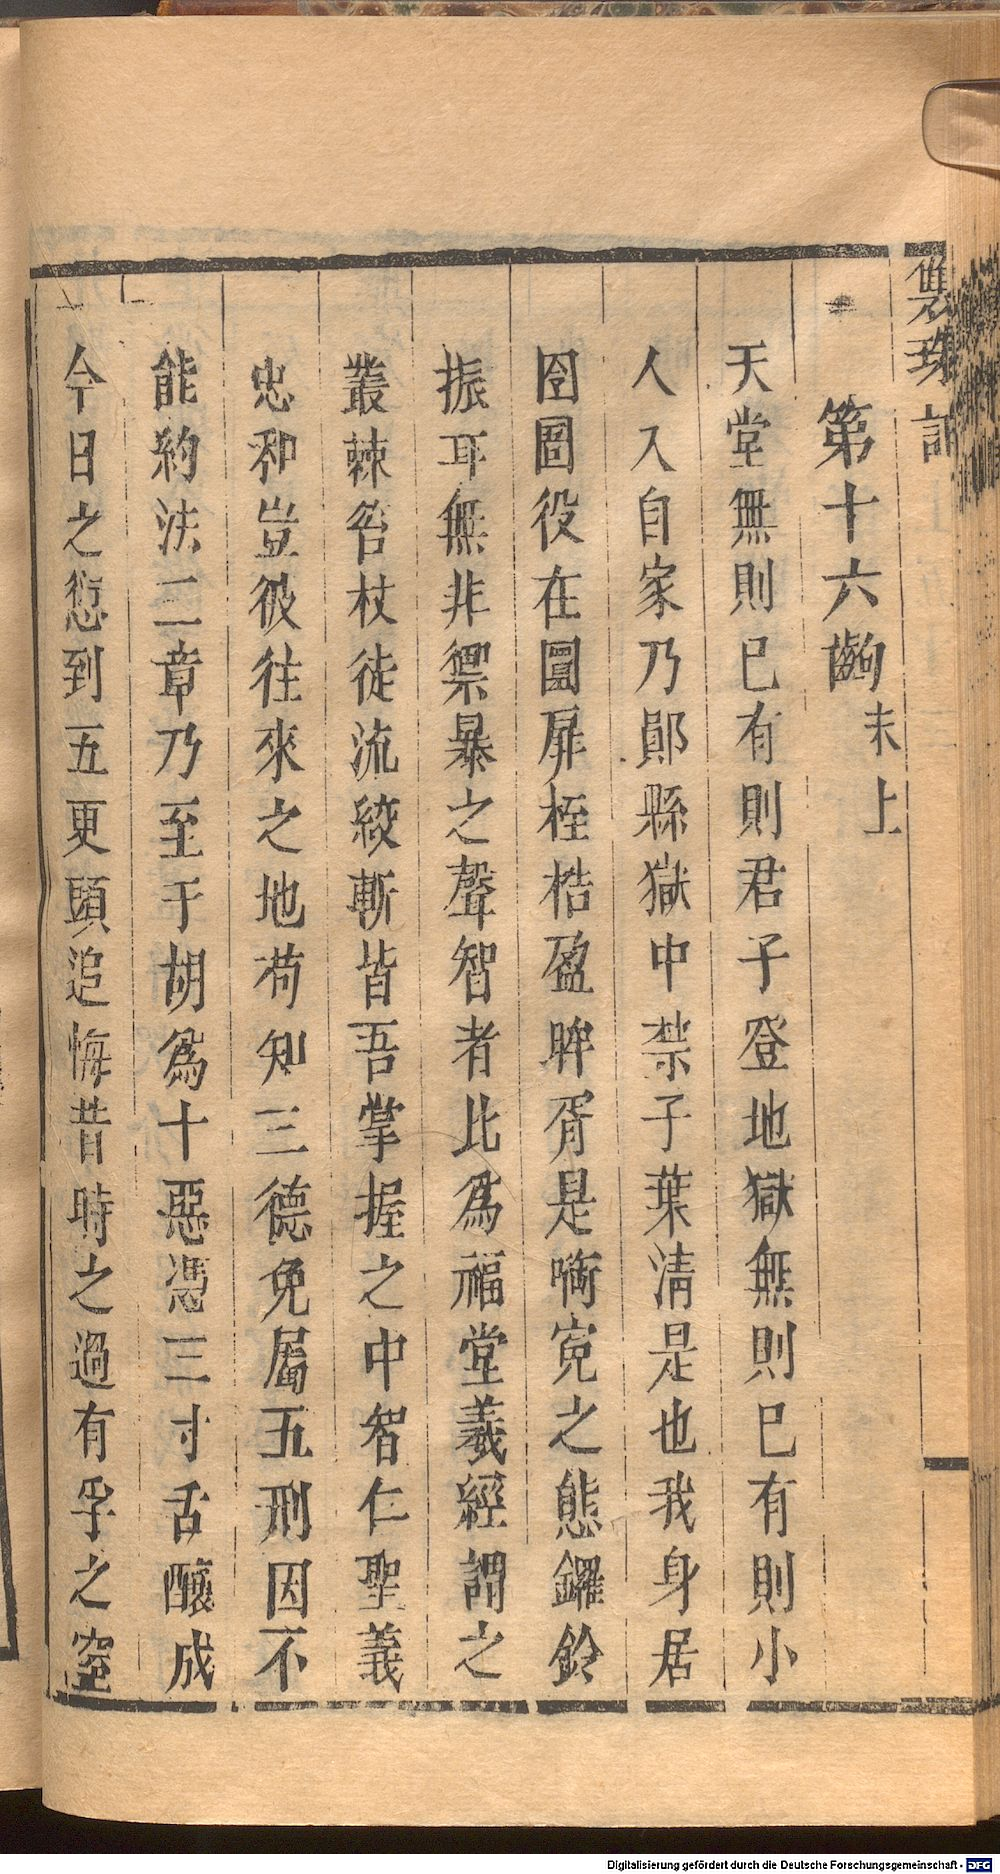 雙珠記
第十六齣 末上
天堂無則已有則君子登地獄無則已有則小
人入自家乃鄖縣獄中禁子葉清是也我身居
囹圄役在圜扉桎梏盈眸胥是啣寃之態鑼鈴
振耳無非禦暴之聲智者比爲福堂羲經謂之
叢棘笞杖徒流絞斬皆吾掌握之中智仁聖義
忠和豈彼往來之地苟知三德免屬五刑因不
能約法三章乃至于胡爲十惡憑三寸舌釀成
今日之愆到五更頭追悔昔時之過有孚之窒
Digitalisierung gefördert durch die Deutsche Forschungsgemeinschaft - DFG